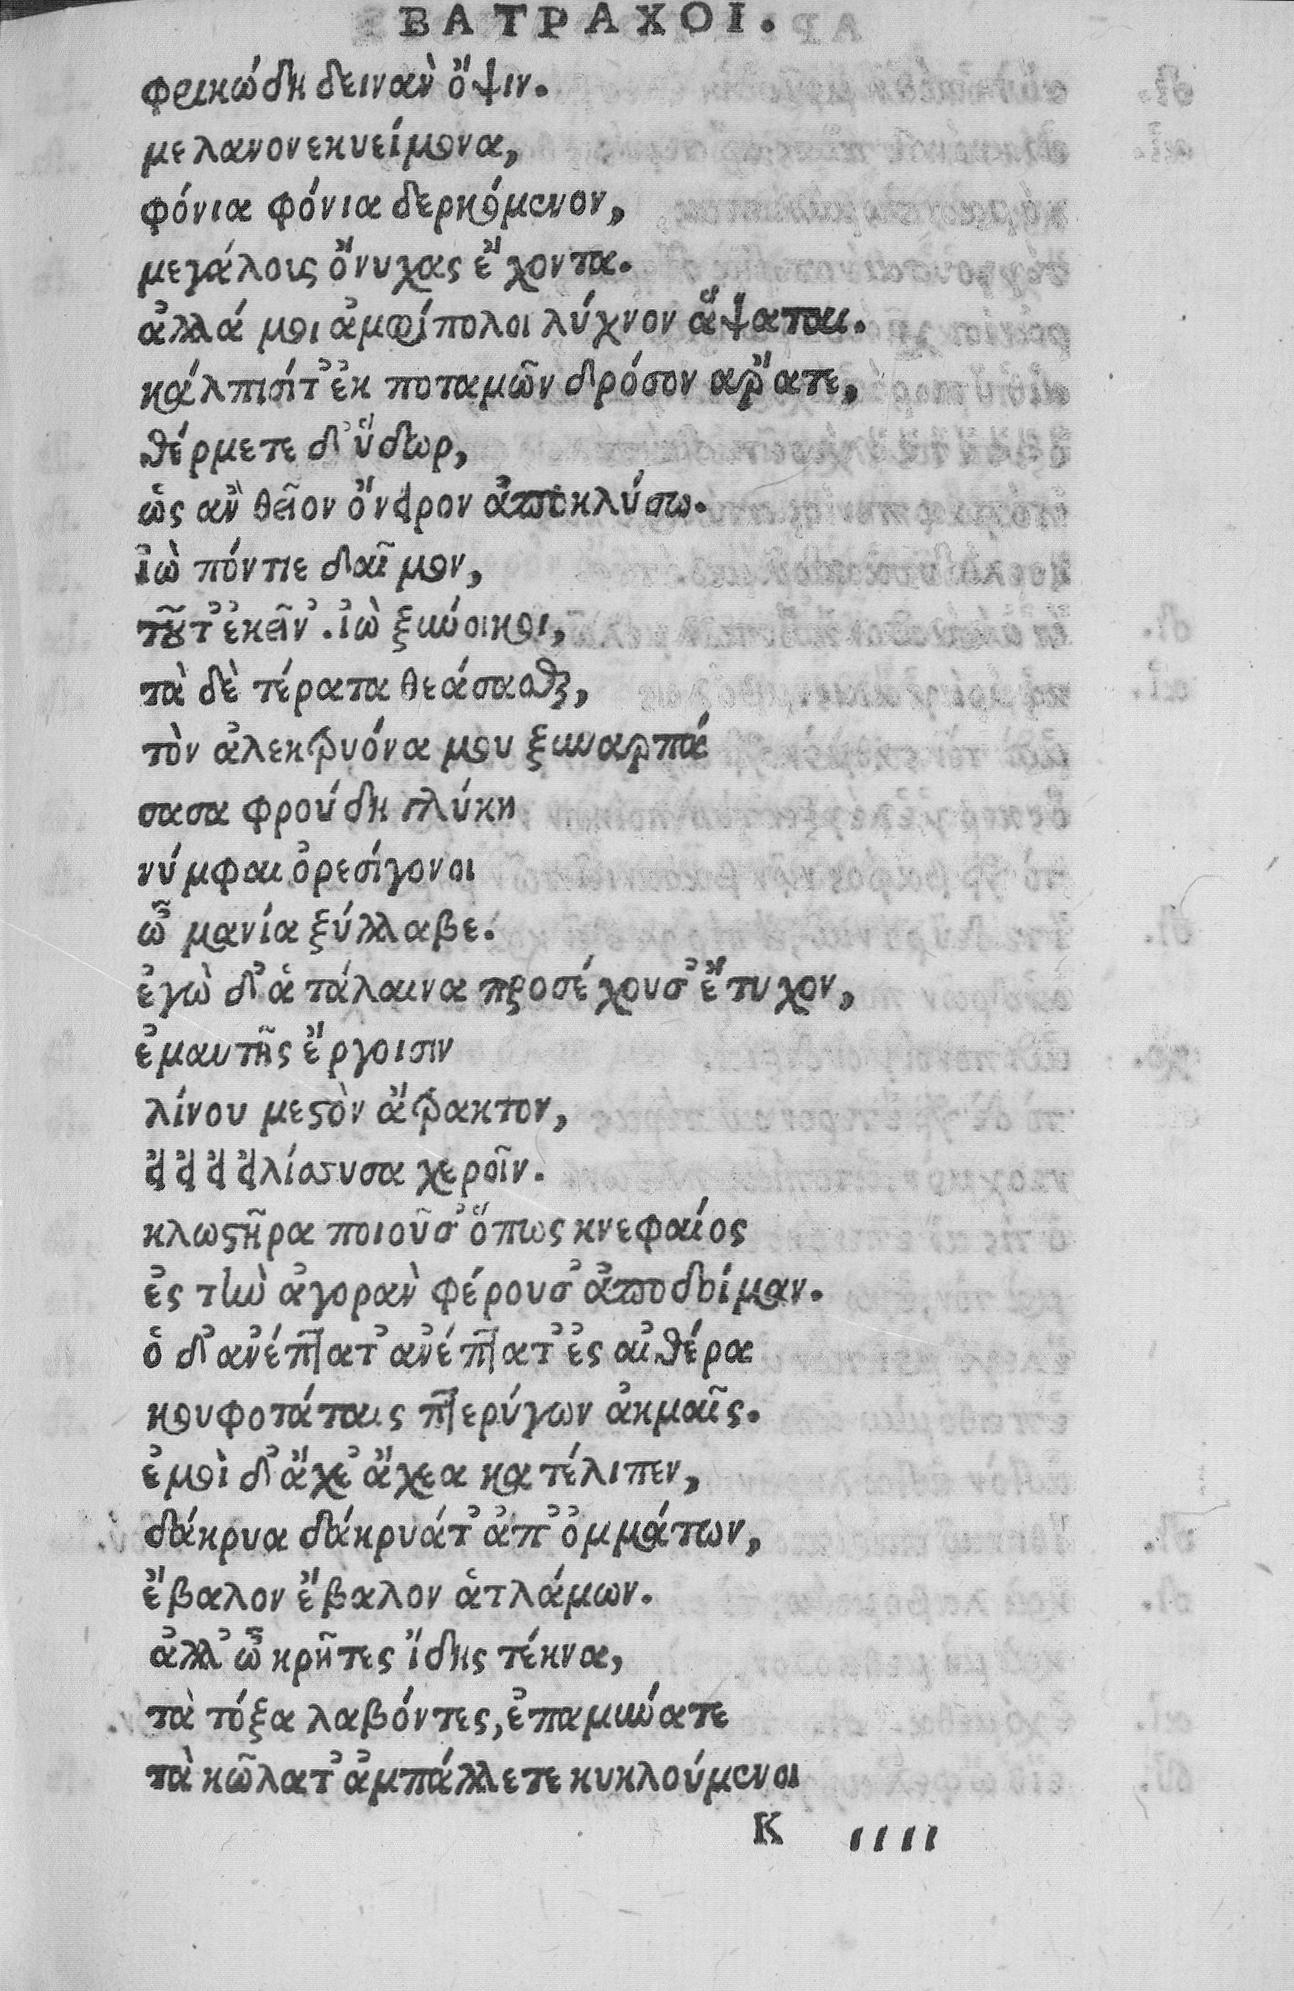 ΒΑΤΡΑΧΟΙ.
φρικώδη δεινὰν ὄψιν.
μελανονεκυείμονα,
φόνια φόνια δερκόμενον,
μεγάλους ὄνυχας ἔχοντα.
ἀλλά μοι ἀμφίπολοι λύχνον ἅψαται.
κάλπισίτ' ἐκ ποταμῶν δρόσον αῤατε,
θέρμετε δ' ὕδωρ,
ὡς ἂν θεῖον ὄνειρον ἀποκλύσω.
ἰὼ πόντιε δαῖμον,
τοῦτ' ἐκεῖν'. ἰὼ ξύνοικοι,
τὰ δὲ τέρατα θεάσασθε,
τὸν ἀλεκτρυόνα μου ξυναρπά
σασα φρούδη γλύκη
νύμφαι ὀρεσίγονοι
ὦ μανία ξύλλαβε.
ἐγὼ δ' ἁ τάλαινα προσέχουσ' ἔτυχον,
ἐμαυτῆς ἔργοισιν
λίνου μεστὸν ἄτρακτον,
εἱ εἱ εἱ εἱλίσσουσα χεροῖν.
κλωστῆρα ποιοῦσ' ὅπως κνεφαίος
ἐς τὴν ἀγορὰν φέρουσ' ἀποδοίμαν.
ὁ δ' ἀνέπτατ' ἀνέπτατ' ἐς αἰθέρα
κουφοτάταις πτερύγων ἀκμαῖς.
ἐμοὶ δ' ἄχε' ἄχεα κατέλιπεν,
δάκρυα δάκρυάτ' ἀπ' ὀμμάτων,
ἔβαλον ἔβαλον ἁτλάμων.
ἀλλ' ὦ κρῆτες ἴδης τέκνα,
τὰ τόξα λαβόντες, ἐπαμύνατε
τὰ κῶλατ' ἀμπάλλετε κυκλούμενοι
Κ ιιιι